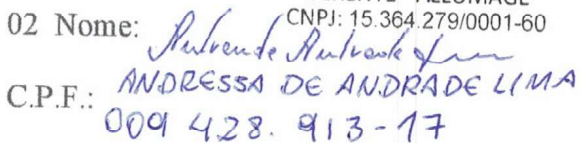 CNPJ: 15.364.279/0001-60
02 Nome:
ANDRESSA DE ANDRADE LIMA
C.P.F.:
009 428. 913-17